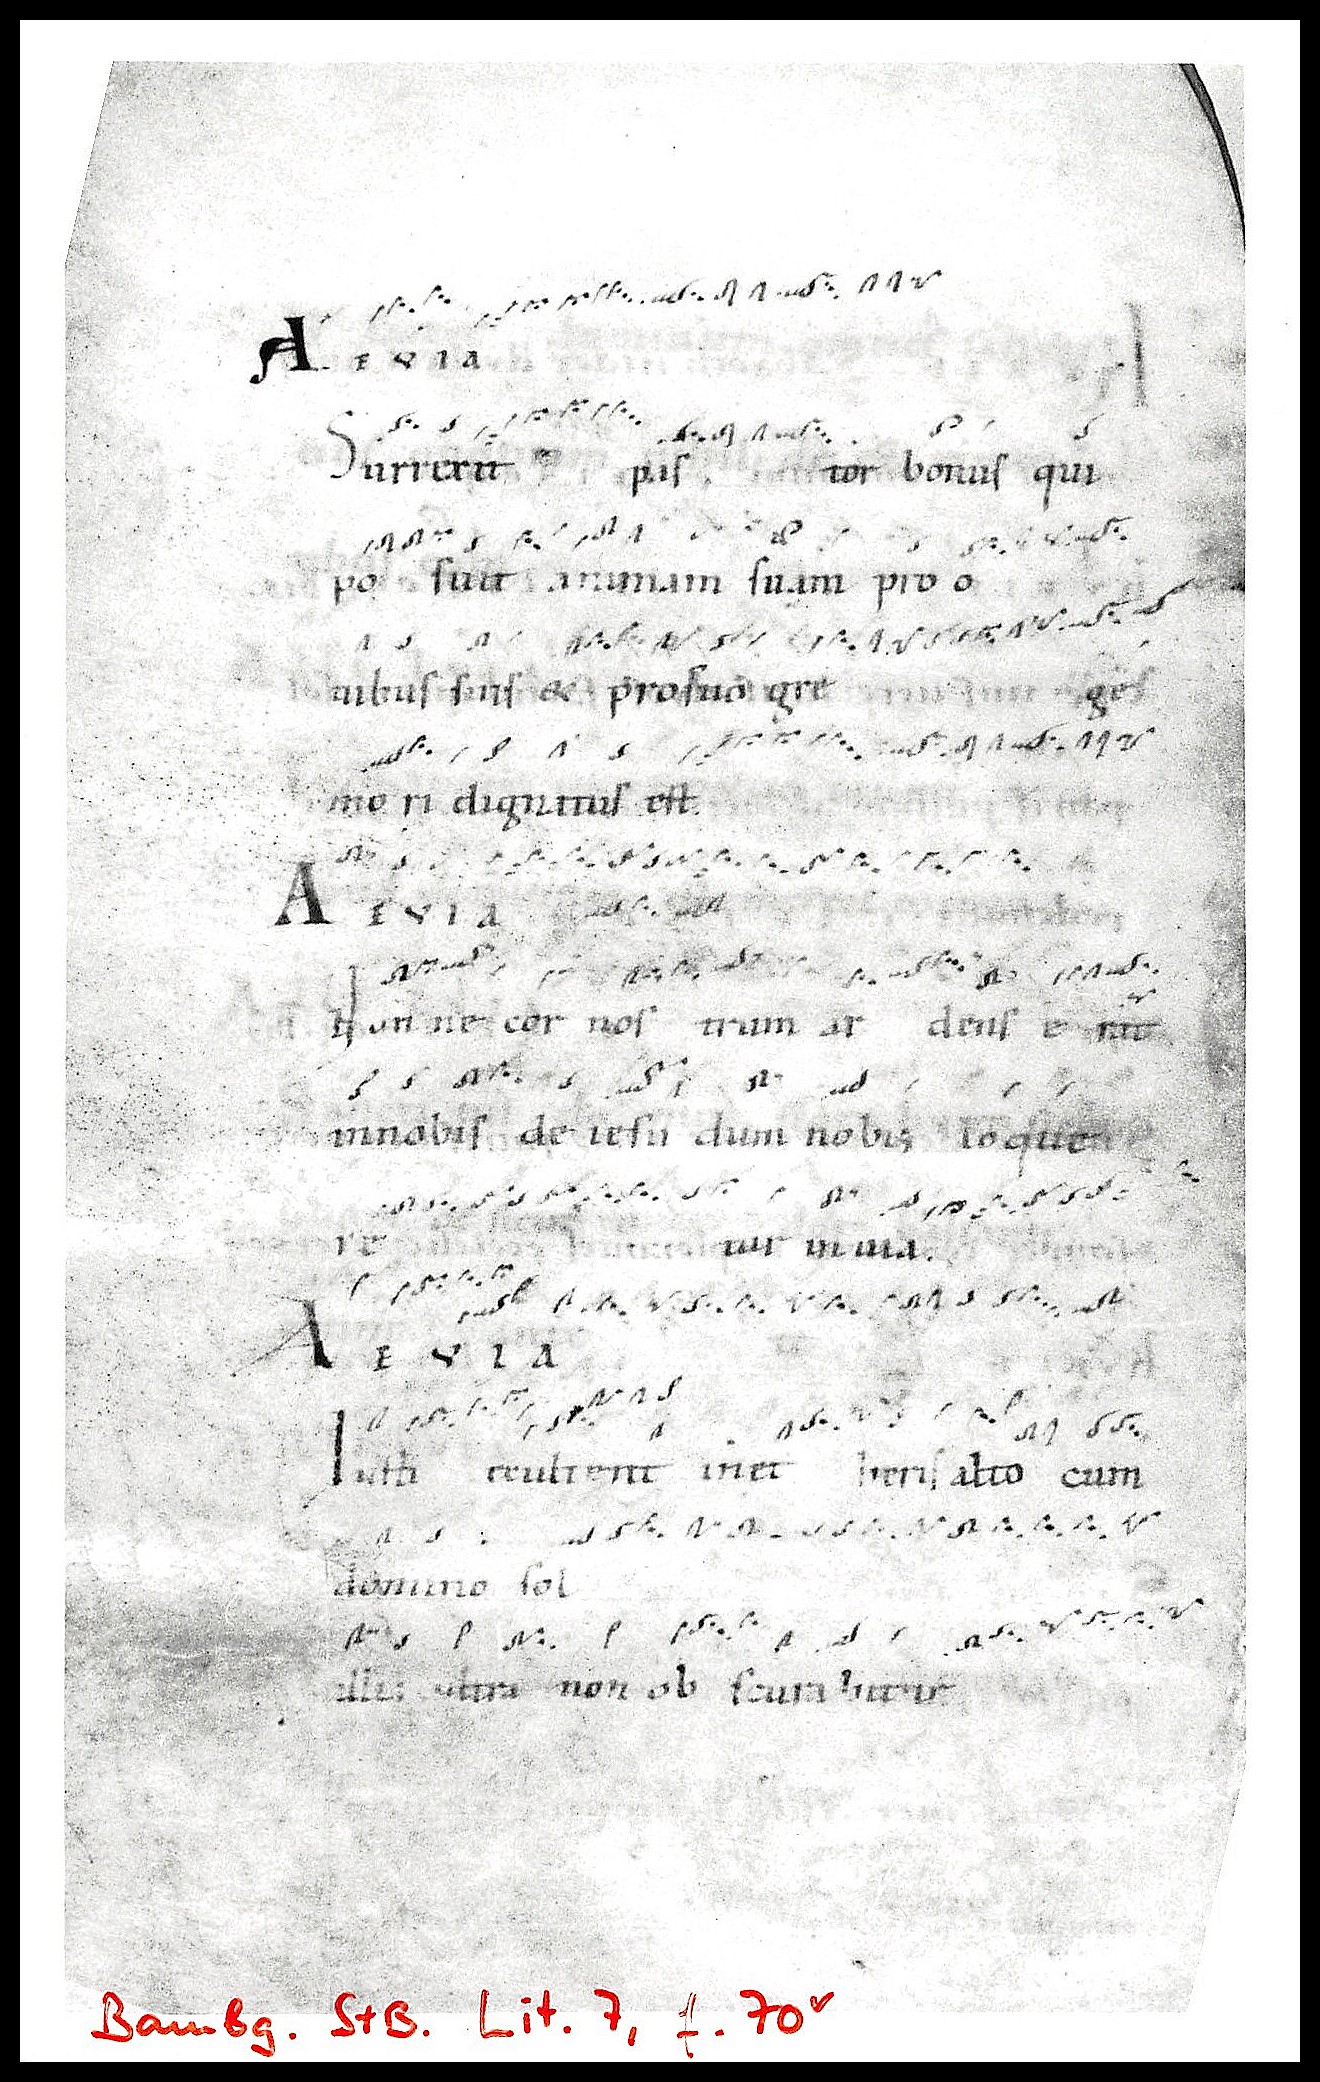 A EVIA
Surrexit pas tor bonus qui
po suit animam suam pro o
nibus suis & pro suo gre ges
mo ri dignatus est.
A EVIA
Non ne cor nos trum ar dens e rat
in nobis de iesu dum nobis loque
re tur in uia.
A EVIA
Iusti epulent inet alto cum
domino sol
ultra non ob scura bitur
Bambg. StB. Lit. 7, f. 70v